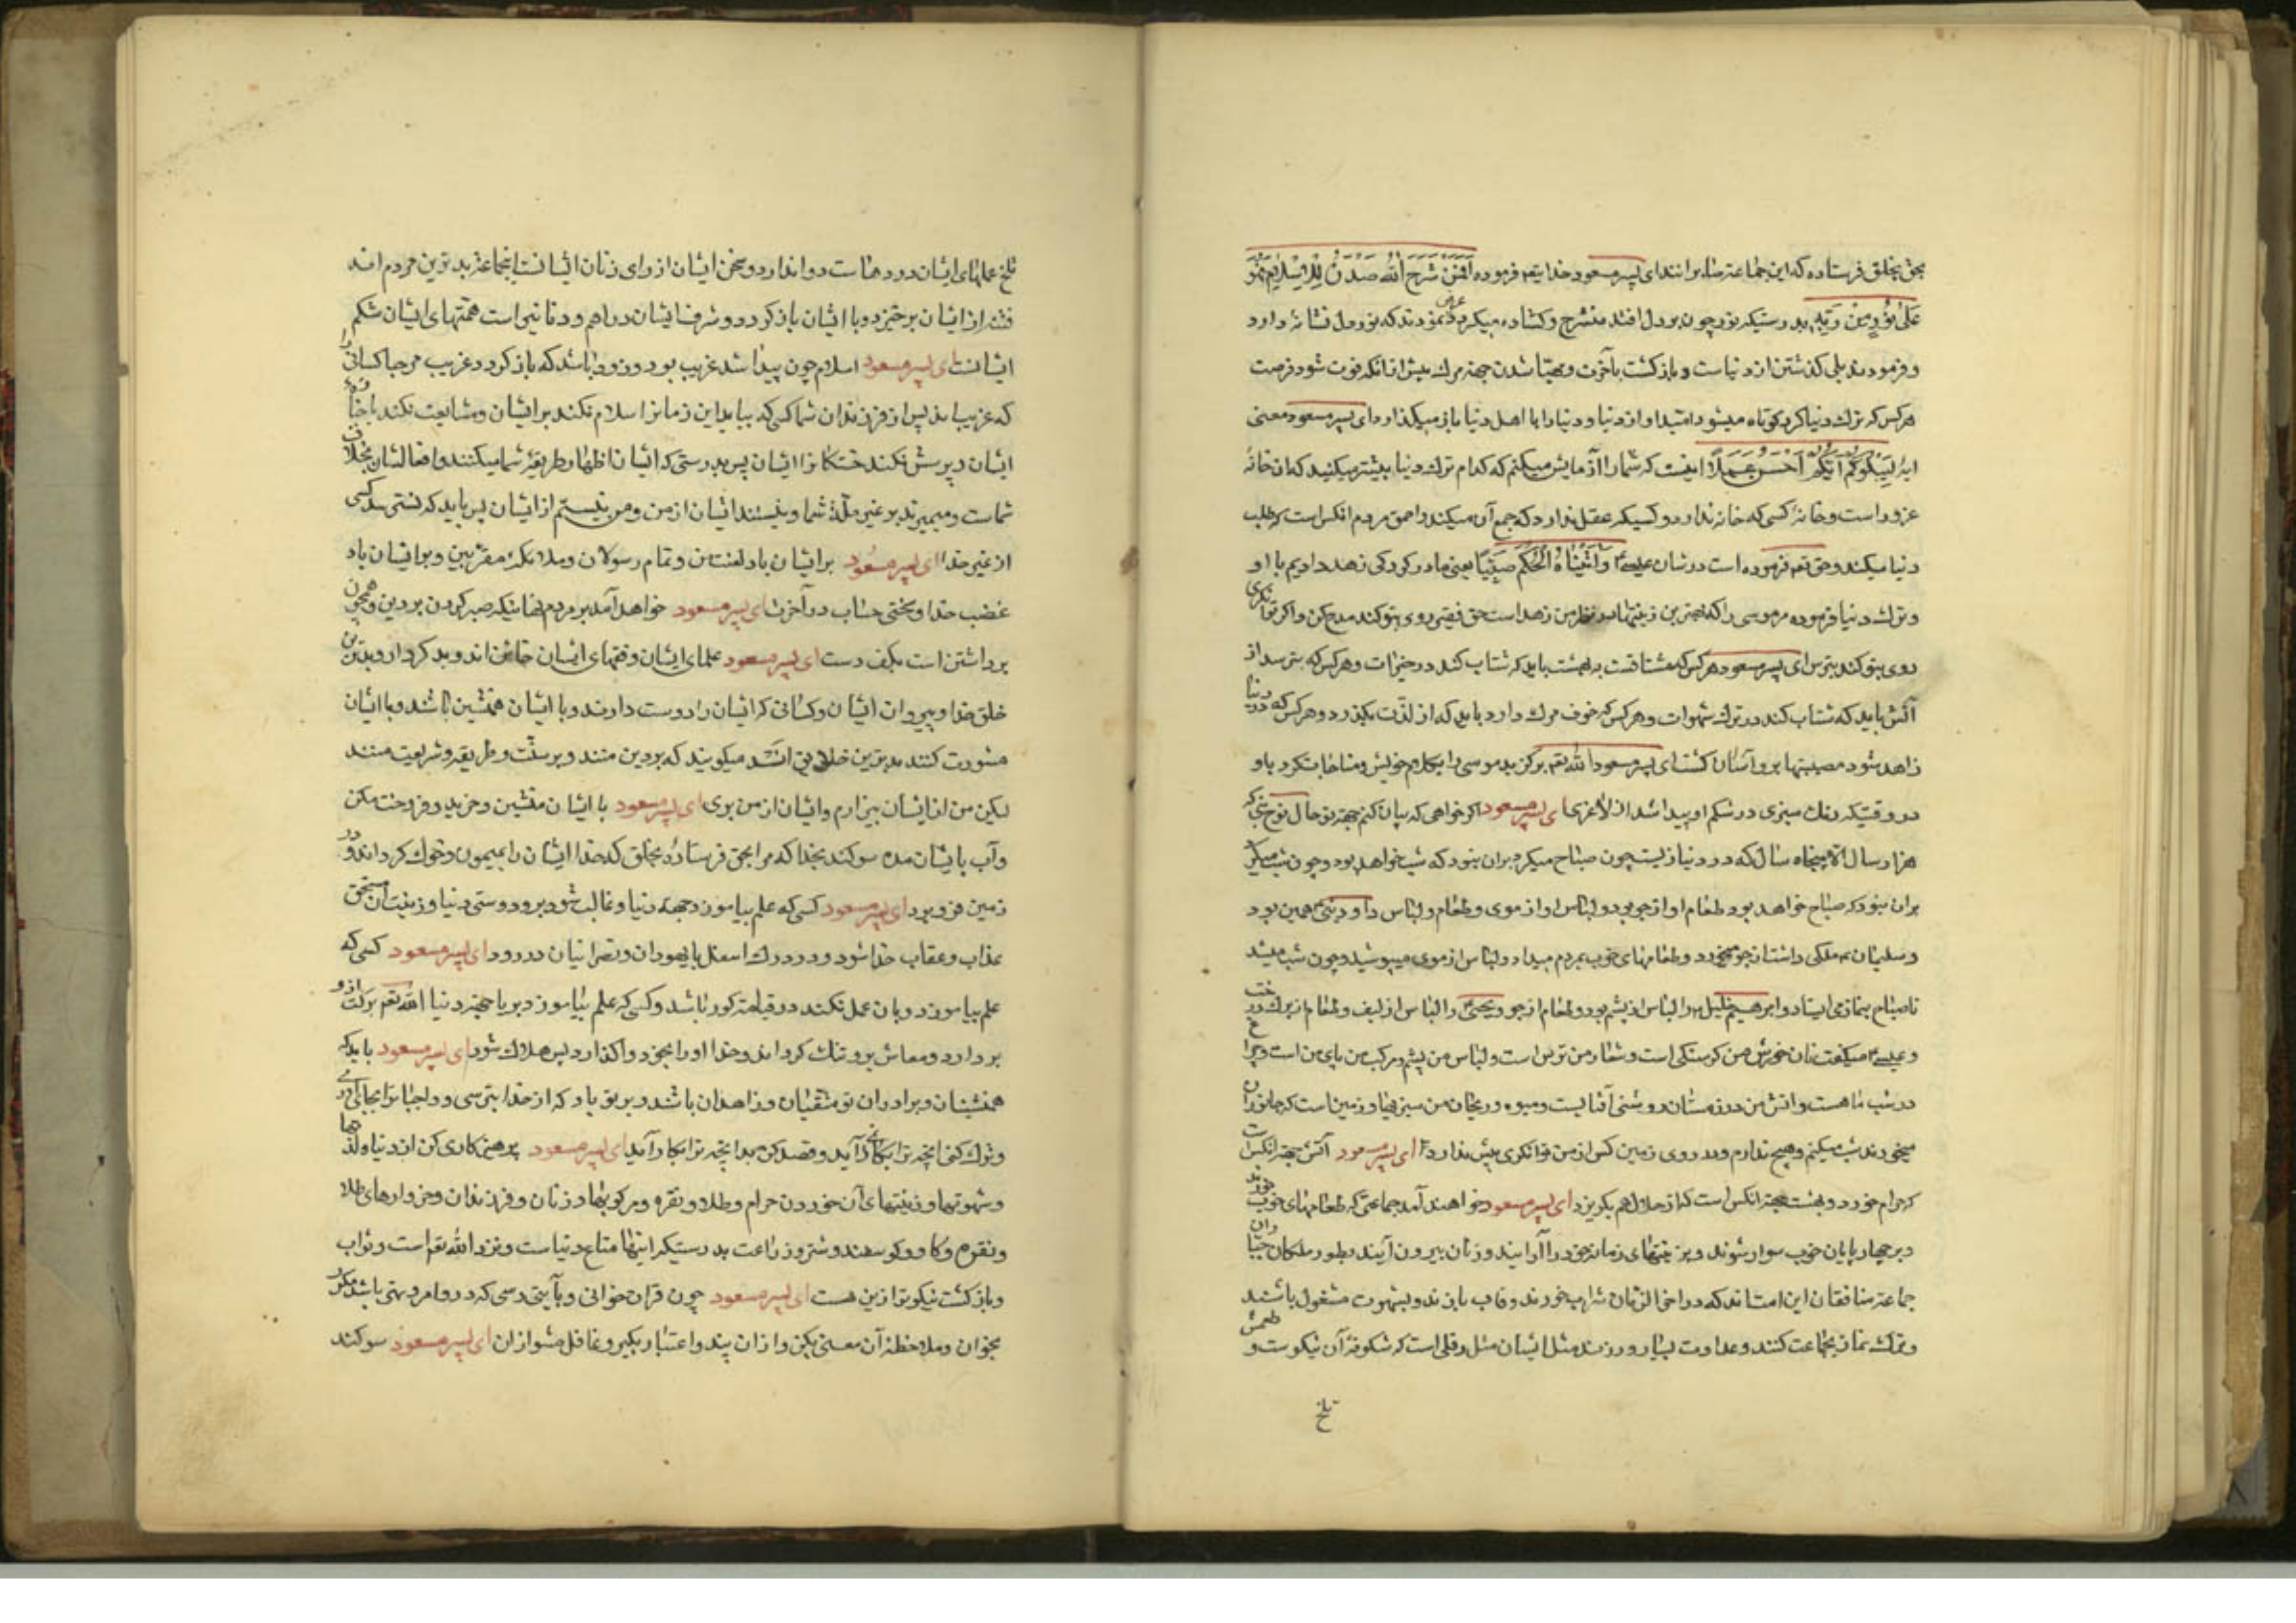 بحق بخلق فرستاده که این جماعت مثل برانند ای پسر مسعود خدایتع فرموده افمن شرح الله صدره للاسلام فهو
علی نور من ربه بدرستیکه نور چون بر دل افتد منشرح و کشاده میکردد عرض نمودند که نور دل نشانه دارد
و فرمودند بلی کذشتن از دنیاست و بازکشت بآخرت و مهیا شدن جهة مرك پیش از انکه فوت شود فرصت
هر کس که ترك دنیا کرد کوتاه میشود امید او از دنیا و دنیا را با اهل دنیا باز میکذارد ای پسر مسعود معنی
ایهٔ لیبلوکم ایکم احسن عملا اینست که شما را آزمایش میکنم که کدام ترك دنیا بیشتر میکنید که ان خانهٔ
غرور است و خانه کسی که خانه ندارد و کسیکه عقل ندارد که جمع آن میکند و احمق مردم انکس است که طلب
دنیا میکند و حق تع فرموده است در شان عیسی ع و آتیناه الحکم صبیا یعنی ما در کودکی زهد دادیم با او
و ترك دنیا فرموده مر موسی را که بهترین زینتها در نظر من زهد است حق فقیری روی بتو کند مدح کن و اکر توانکری
روی بتو کند بترس ای پسر مسعود هر کس که مشتاقست به بهشت باید که شتاب کند در خیرات و هر کس که بترسد از
آتش باید که شتاب کند در ترك شهوات و هر کس که خوف مرك دارد باید که از لذت بکذرد و هر کس که در دنیا
زاهد شود مصیبتها برو آسان کشت ای پسر مسعود الله تع برکزید موسی را بکلام خویش و مناجات کرد باو
در وقتیکه رنك سبزی در شکم او پیدا شد از لاغری ای پسر مسعود اکر خواهی که بیان کنم جهة تو حال نوح نبی که
هزار سال الا پنجاه سال که در دنیا زیست چون صباح میکرد بران بنود که شب خواهد بود و چون شب میکرد
بران بنود که صباح خواهد بود طعام او از جو بود و لباس او از موی و طعام و لباس داود نبی ع همین بود
و سلیمان ع ملکی داشت از جو میخورد و طعامهای خوب بمردم میداد و لباس از موی میپوشید و چون شب میشد
تا صباح بنماز می ایستاد و ابرهیم خلیل ع را لباس از پشم بود و طعام از جو و یحیی ع را لباس از لیف و طعام از برك درخت
و عیسی ع میکفت نان خورش من کرسنکی است و شعار من ترس است و لباس من پشم و مرکب من پای من است و چراغ
در شب ماهست و اتش من در زمستان روشنی آفتابست و میوه و ریحان من سبزیها و زمین است که جانوران
میخورند شب میکنم و هیچ ندارم و در روی زمین کس از من توانکری پیش ندارد ای پسر مسعود آتش جهة انکس است
که حرام خورد و بهشت جهة انکس است که از حلال هم بکریزد ای پسر مسعود خواهند آمد جماعتی که طعامهای خوب خورند
و بر چهارپایان خوب سوار شوند و بزینتهای زمانه خود را آرایند و زنان بیرون آیند بطور ملکان جباران
جماعت منافقان این امتاند که در اخر الزمان شراب خورند و قاب بازند و بشهوت مشغول باشند
و ترك نماز بجماعت کنند و عداوت بسیار ورزند مثل ایشان مثل دفلی است که شکوفهٔ آن نیکوست و طعمش
تلخ
تلخ عملهای ایشان دردهاست دوا ندارد و سخن ایشان از رای زنان ایشانست اینجماعت بدترین مردم اند
فتنه از ایشان برخیزد و با ایشان باز کردد و شرف ایشان دراهم و دنانیر است همتهای ایشان شکم
ایشانست ای پسر مسعود اسلام چون پیدا شد غریب بود و زود باشد که باز کردد غریب مرحبا کسانی را
که غریب اند پس از فرزندان شما کسی که بیابد این زمانرا سلام نکند بر ایشان و مشایعت نکند با جنازهٔ
ایشان و پرسش نکند خستکانرا ایشان پس بدرستی که ایشان اظهار طریقهٔ شما میکنند و افعالشان بخلاف
شماست و میمیرند بر غیر ملة شما و نیستند ایشان از من و من نیستم از ایشان پس باید که نترسد کسی
از غیر خدا ای پسر مسعود بر ایشان باد لعنت من و تمام رسولان و ملائکهٔ مقربین و بر ایشان باد
غضب خدا و سختی حساب در آخرت ای پسر مسعود خواهد آمد بر مردم زمانیکه صبر کردن بر دین همچون
برداشتن است بکف دست ای پسر مسعود علمای ایشان و فقهای ایشان خائن اند و بدکردار و بدترین
خلق خدا و پیروان ایشان و کسانی که ایشان را دوست دارند و با ایشان همنشین باشند و با ایشان
مشورت کنند بدترین خلایق اند میکویند که بر دین منند و بر سنت و طریقه و شریعت منند
لیکن من از ایشان بیزارم و ایشان از من بری ای پسر مسعود با ایشان منشین و خرید و فروخت مکن
و آب بایشان مده سوکند بخدا که مرا بحق فرستاده بخلق که خدا ایشان را بمیمون و خوك کرداند و در
زمین فرو برد ای پسر مسعود کسی که علم بیاموزد جهة دنیا و غالب شود برو دوستی دنیا و زینت ان مستحق
عذاب و عقاب خدا شود و در درك اسفل با یهودان و نصرانیان در رود ای پسر مسعود کسی که
علم بیاموزد و بان عمل نکند در قیامت کور باشد و کسی که علم بیاموزد بریا جهة دنیا الله تع برکت ازو
بردارد و معاش برو تنك کرداند و خدا او را بخود واکذارد پس هلاك شود ای پسر مسعود باید که
همنشینان و برادران تو متقیان و زاهدان باشند و بر تو باد که از خدا بترسی و واجباترا بجای آری
و ترك کنی انچه ترا بکار نآید و قصد کن بدانچه ترا بکار آید ای پسر مسعود پرهیزکاری کن از دنیا و لذتها
و شهوتها و زینتهای آن خوردن حرام و طلا و نقره و مرکوبها و زنان و فرزندان و خروارهای طلا
و نقره و کاو و کوسفند و شتر و زراعت بدرستیکه اینها متاع دنیاست و نزد الله تع است و ثواب
و بازکشت نیکوتر ازین هست ای پسر مسعود چون قران خوانی و بآیتی رسی که در و امر و نهی باشد مکرر
بخوان و ملاحظهٔ آن معنی بکن و از ان پند و اعتبار بکیر و غافل مشو از ان ای پسر مسعود سوکند